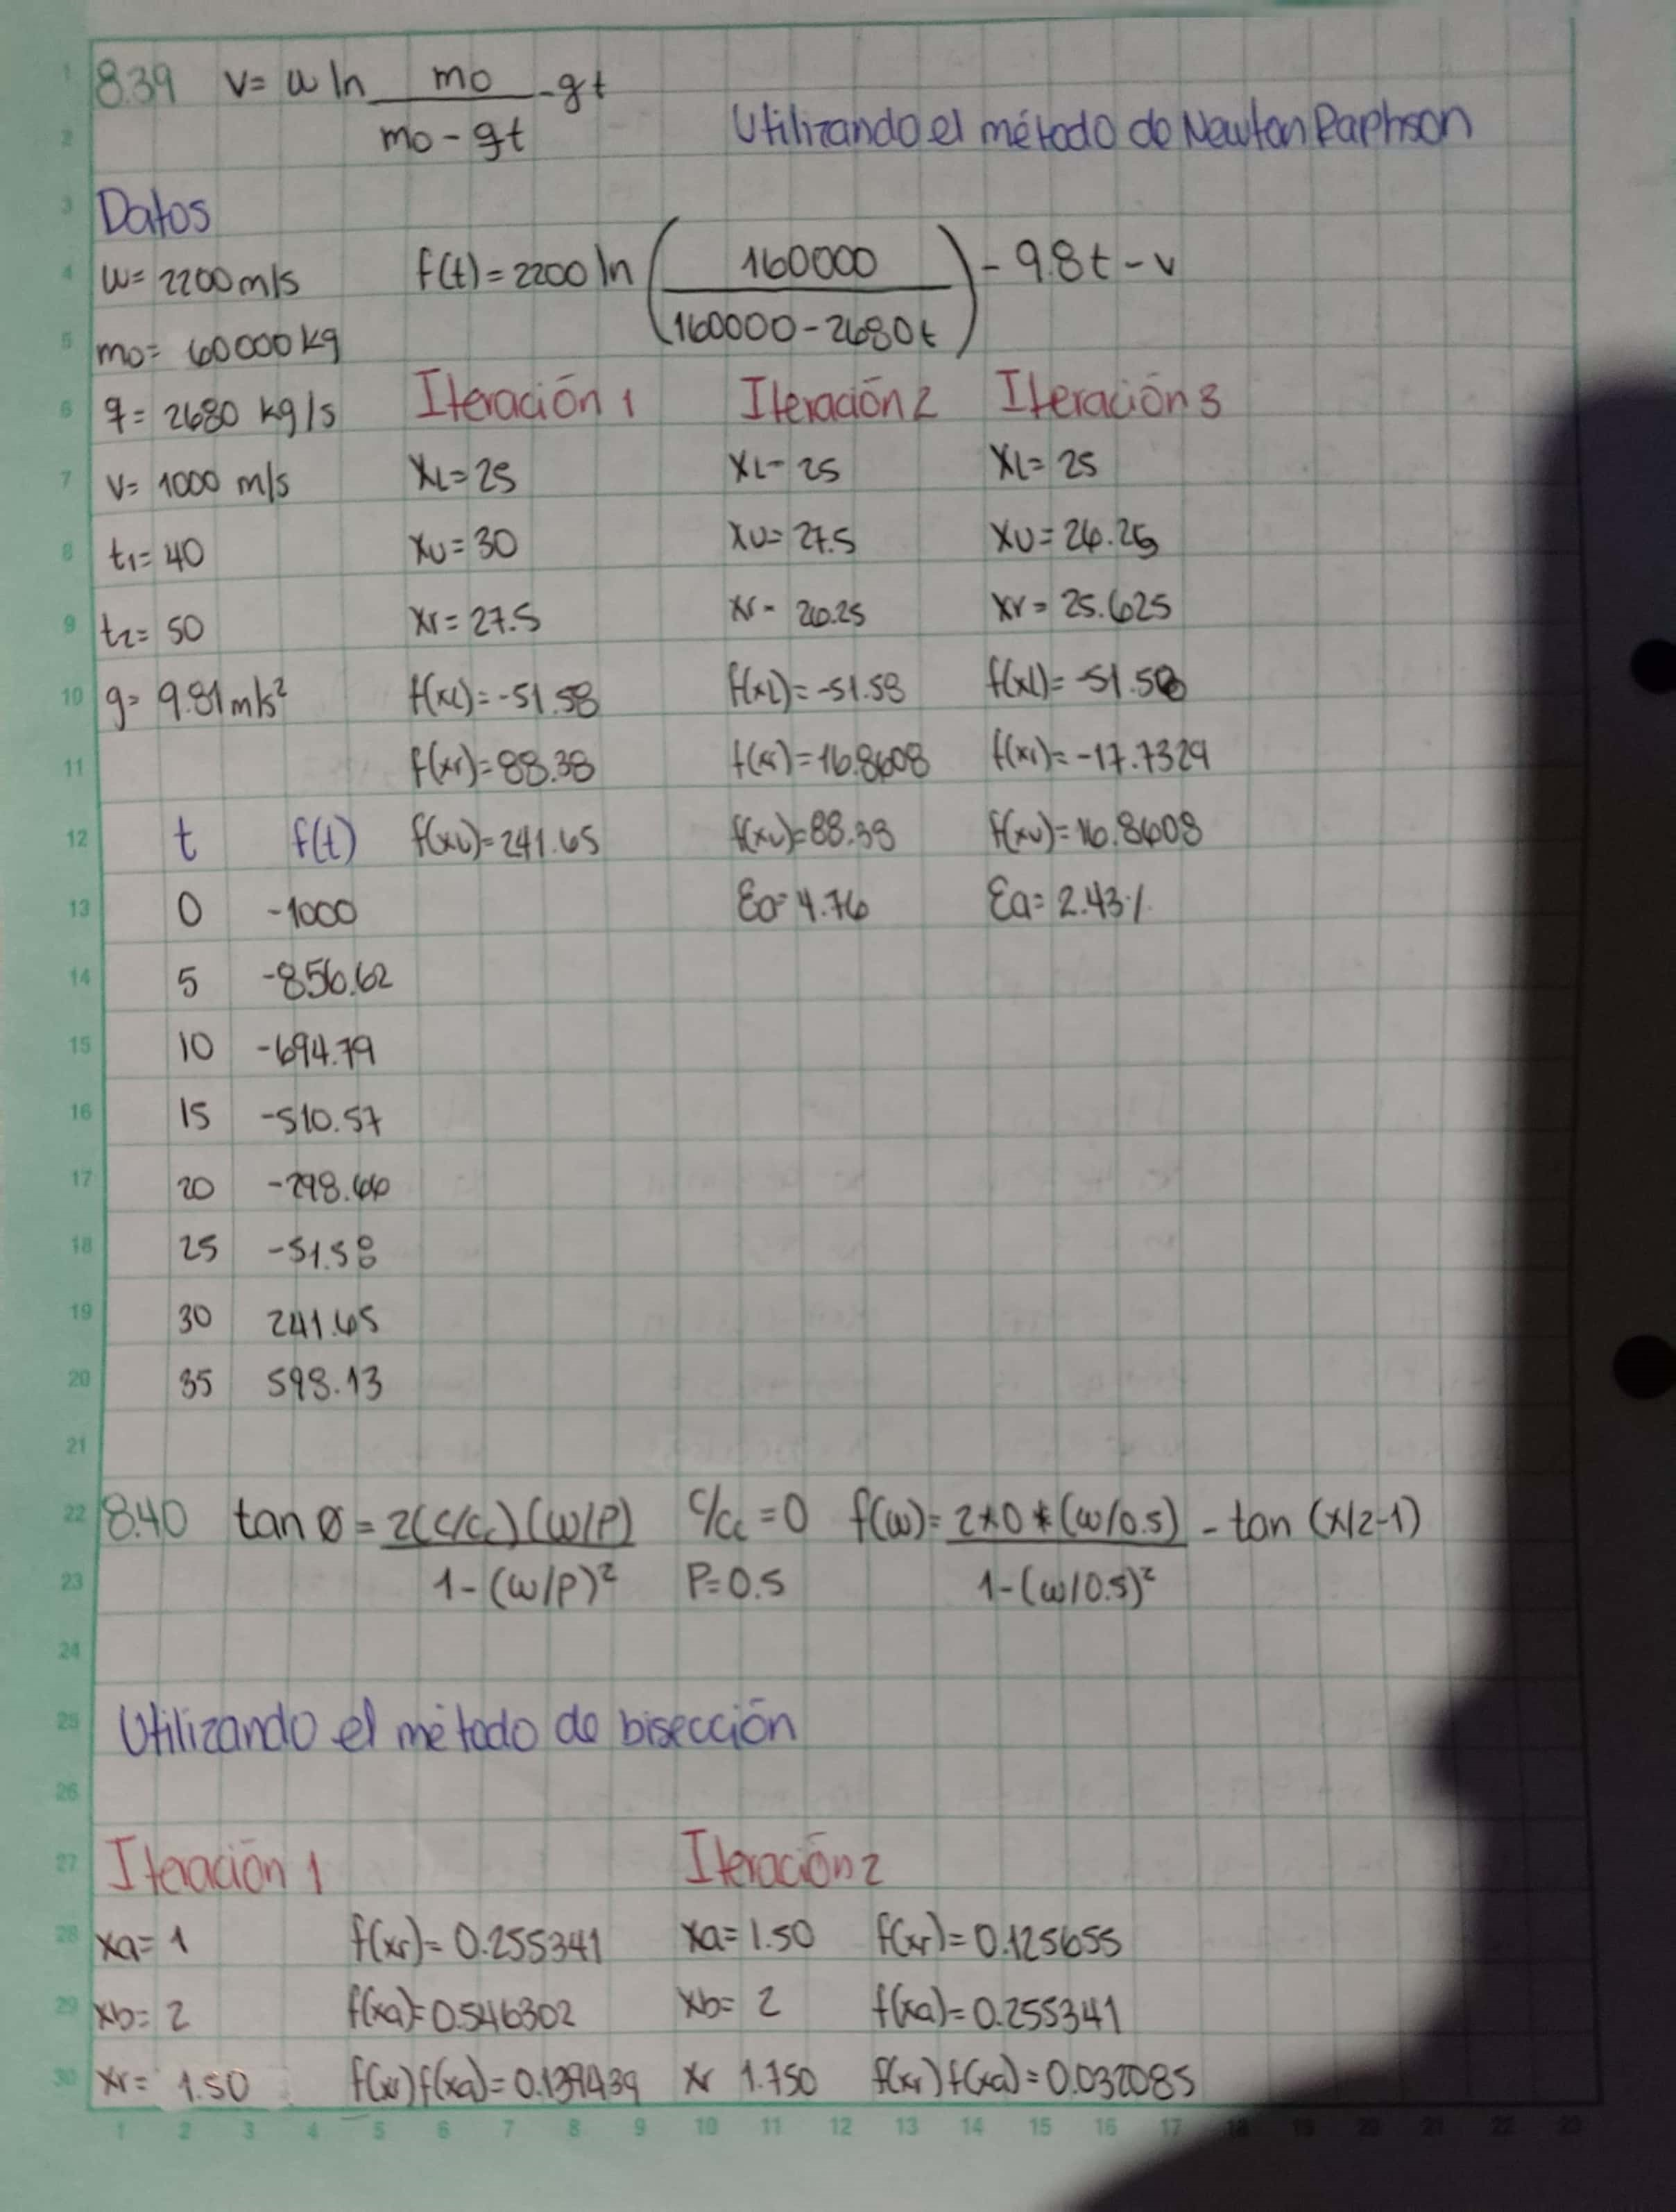 8.39 v= u ln mo/mo-qt -gt
Utilizando el método de Newton Raphson
Datos
u= 2200 m/s
f(t)=2200 ln (160000/160000-2680t) - 9.8t - v
mo= 60000 kg
q= 2680 kg/s
v= 1000 m/s
t1= 40
t2= 50
g= 9.81 m/s²
Iteración 1
XL=25
XU=30
Xr=27.5
f(XL)=-51.58
f(xr)=88.38
f(xu)=241.65
Iteración 2
XL= 25
XU= 27.5
Xr= 26.25
f(XL)=-51.58
f(xr)=16.8608
f(xu)=88.38
Ea= 4.76
Iteración 3
XL= 25
XU= 26.25
Xr= 25.625
f(XL)=-51.58
f(xr)=-17.7329
f(xu)=16.8608
Ea= 2.43%
t f(t)
0 -1000
5 -856.62
10 -694.79
15 -510.57
20 -298.66
25 -51.58
30 241.65
35 598.13
8.40 tan Ø = 2(C/Cc)(ω/P)/1-(ω/P)² C/Cc=0 P=0.5 f(ω)= 2*0*(ω/0.5)/1-(ω/0.5)² - tan (x/2-1)
Utilizando el método de bisección
Iteración 1
xa= 1 f(xr)= 0.255341
xb= 2 f(xa)=0.546302
xr= 1.50 f(xr)f(xa)=0.139439
Iteración 2
xa=1.50 f(xr)=0.125655
xb= 2 f(xa)=0.255341
xr 1.750 f(xr)f(xa)=0.032085
1 2 3 4 5 6 7 8 9 10 11 12 13 14 15 16 17 18 19 20 21 22 23